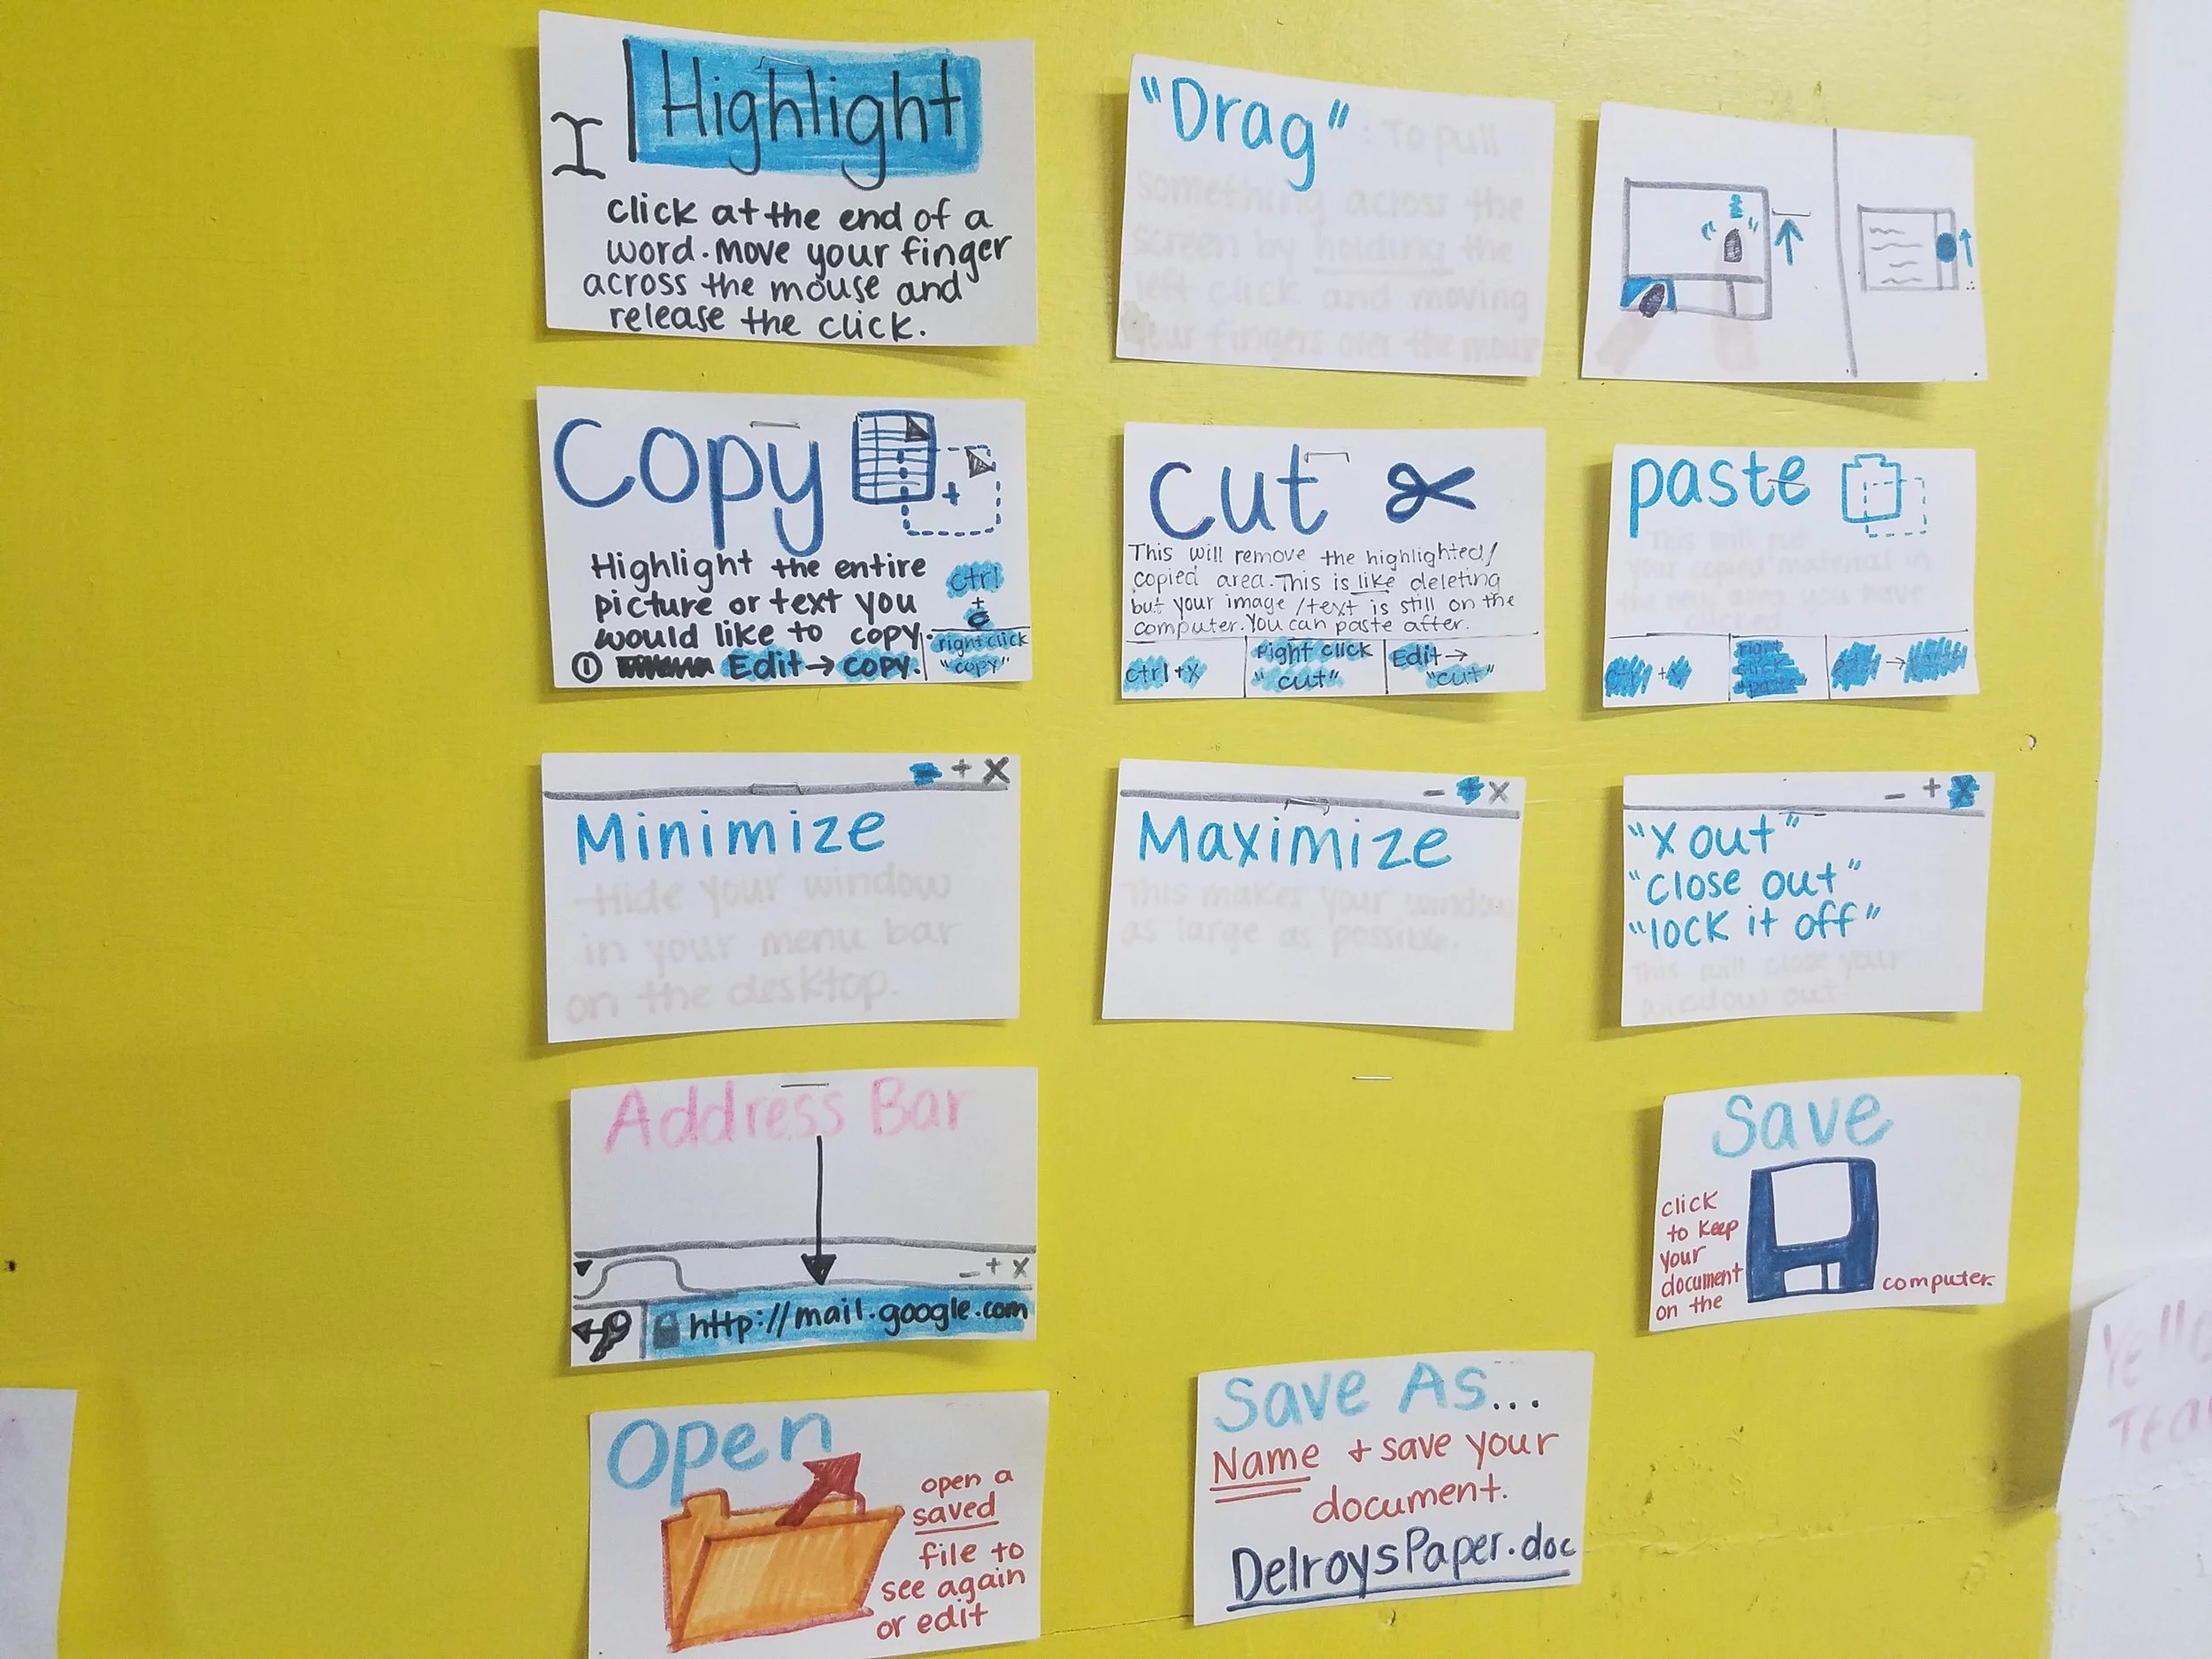 Highlight
click at the end of a
word. Move your finger
across the mouse and
release the click.
"Drag" : To pull
something across the
screen by holding the
left click and moving
your fingers over the mouse
Copy
Highlight the entire
picture or text you
would like to copy.
① Edit → copy.
ctrl
+
c
right click
"copy"
cut
This will remove the highlighted/
copied area. This is like deleting
but your image/text is still on the
computer. You can paste after.
ctrl+x
Right click
"cut"
Edit →
"cut"
paste
This will put
your copied material in
the new area you have
clicked
right
click
"paste"
- + X
Minimize
Hide your window
in your menu bar
on the desktop.
- + X
Maximize
This makes your window
as large as possible.
- + X
"X out"
"close out"
"lock it off"
This will close your
window out
Address Bar
- + X
http://mail.google.com
Save
click
to keep
your
document
on the
computer.
Open
open a
saved
file to
see again
or edit
Save As...
Name + save your
document.
DelroysPaper.doc